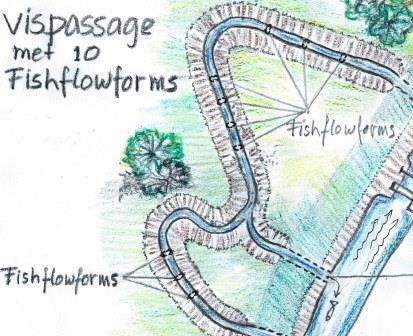 Vispassage
met 10
Fishflowforms
Fishflowforms
Fishflowforms